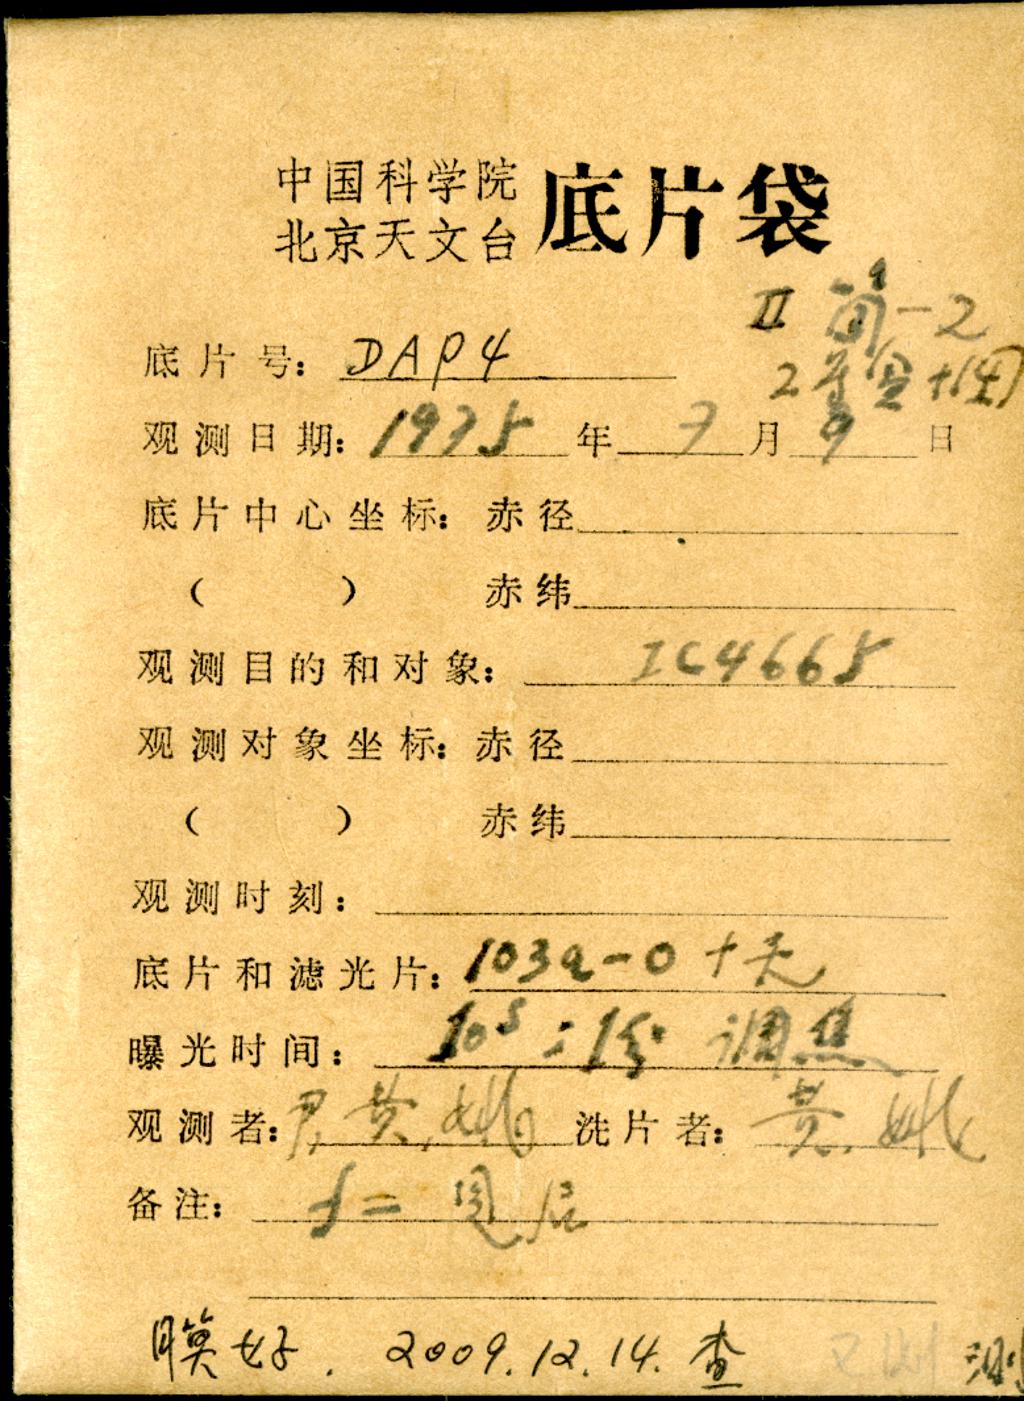 中国科学院
北京天文台 底片袋
II 间-2
底片号: DAP4
观测日期: 1975 年 7 月 9 日
底片中心坐标: 赤径
( ) 赤纬
观测目的和对象: IC4665
观测对象坐标: 赤径
( ) 赤纬
观测时刻:
底片和滤光片: 103a-O +无
曝光时间: 10s : 1分 调焦
观测者: 黄 洗片者: 黄
备注: f=
膜好. 2009.12.14. 查 测